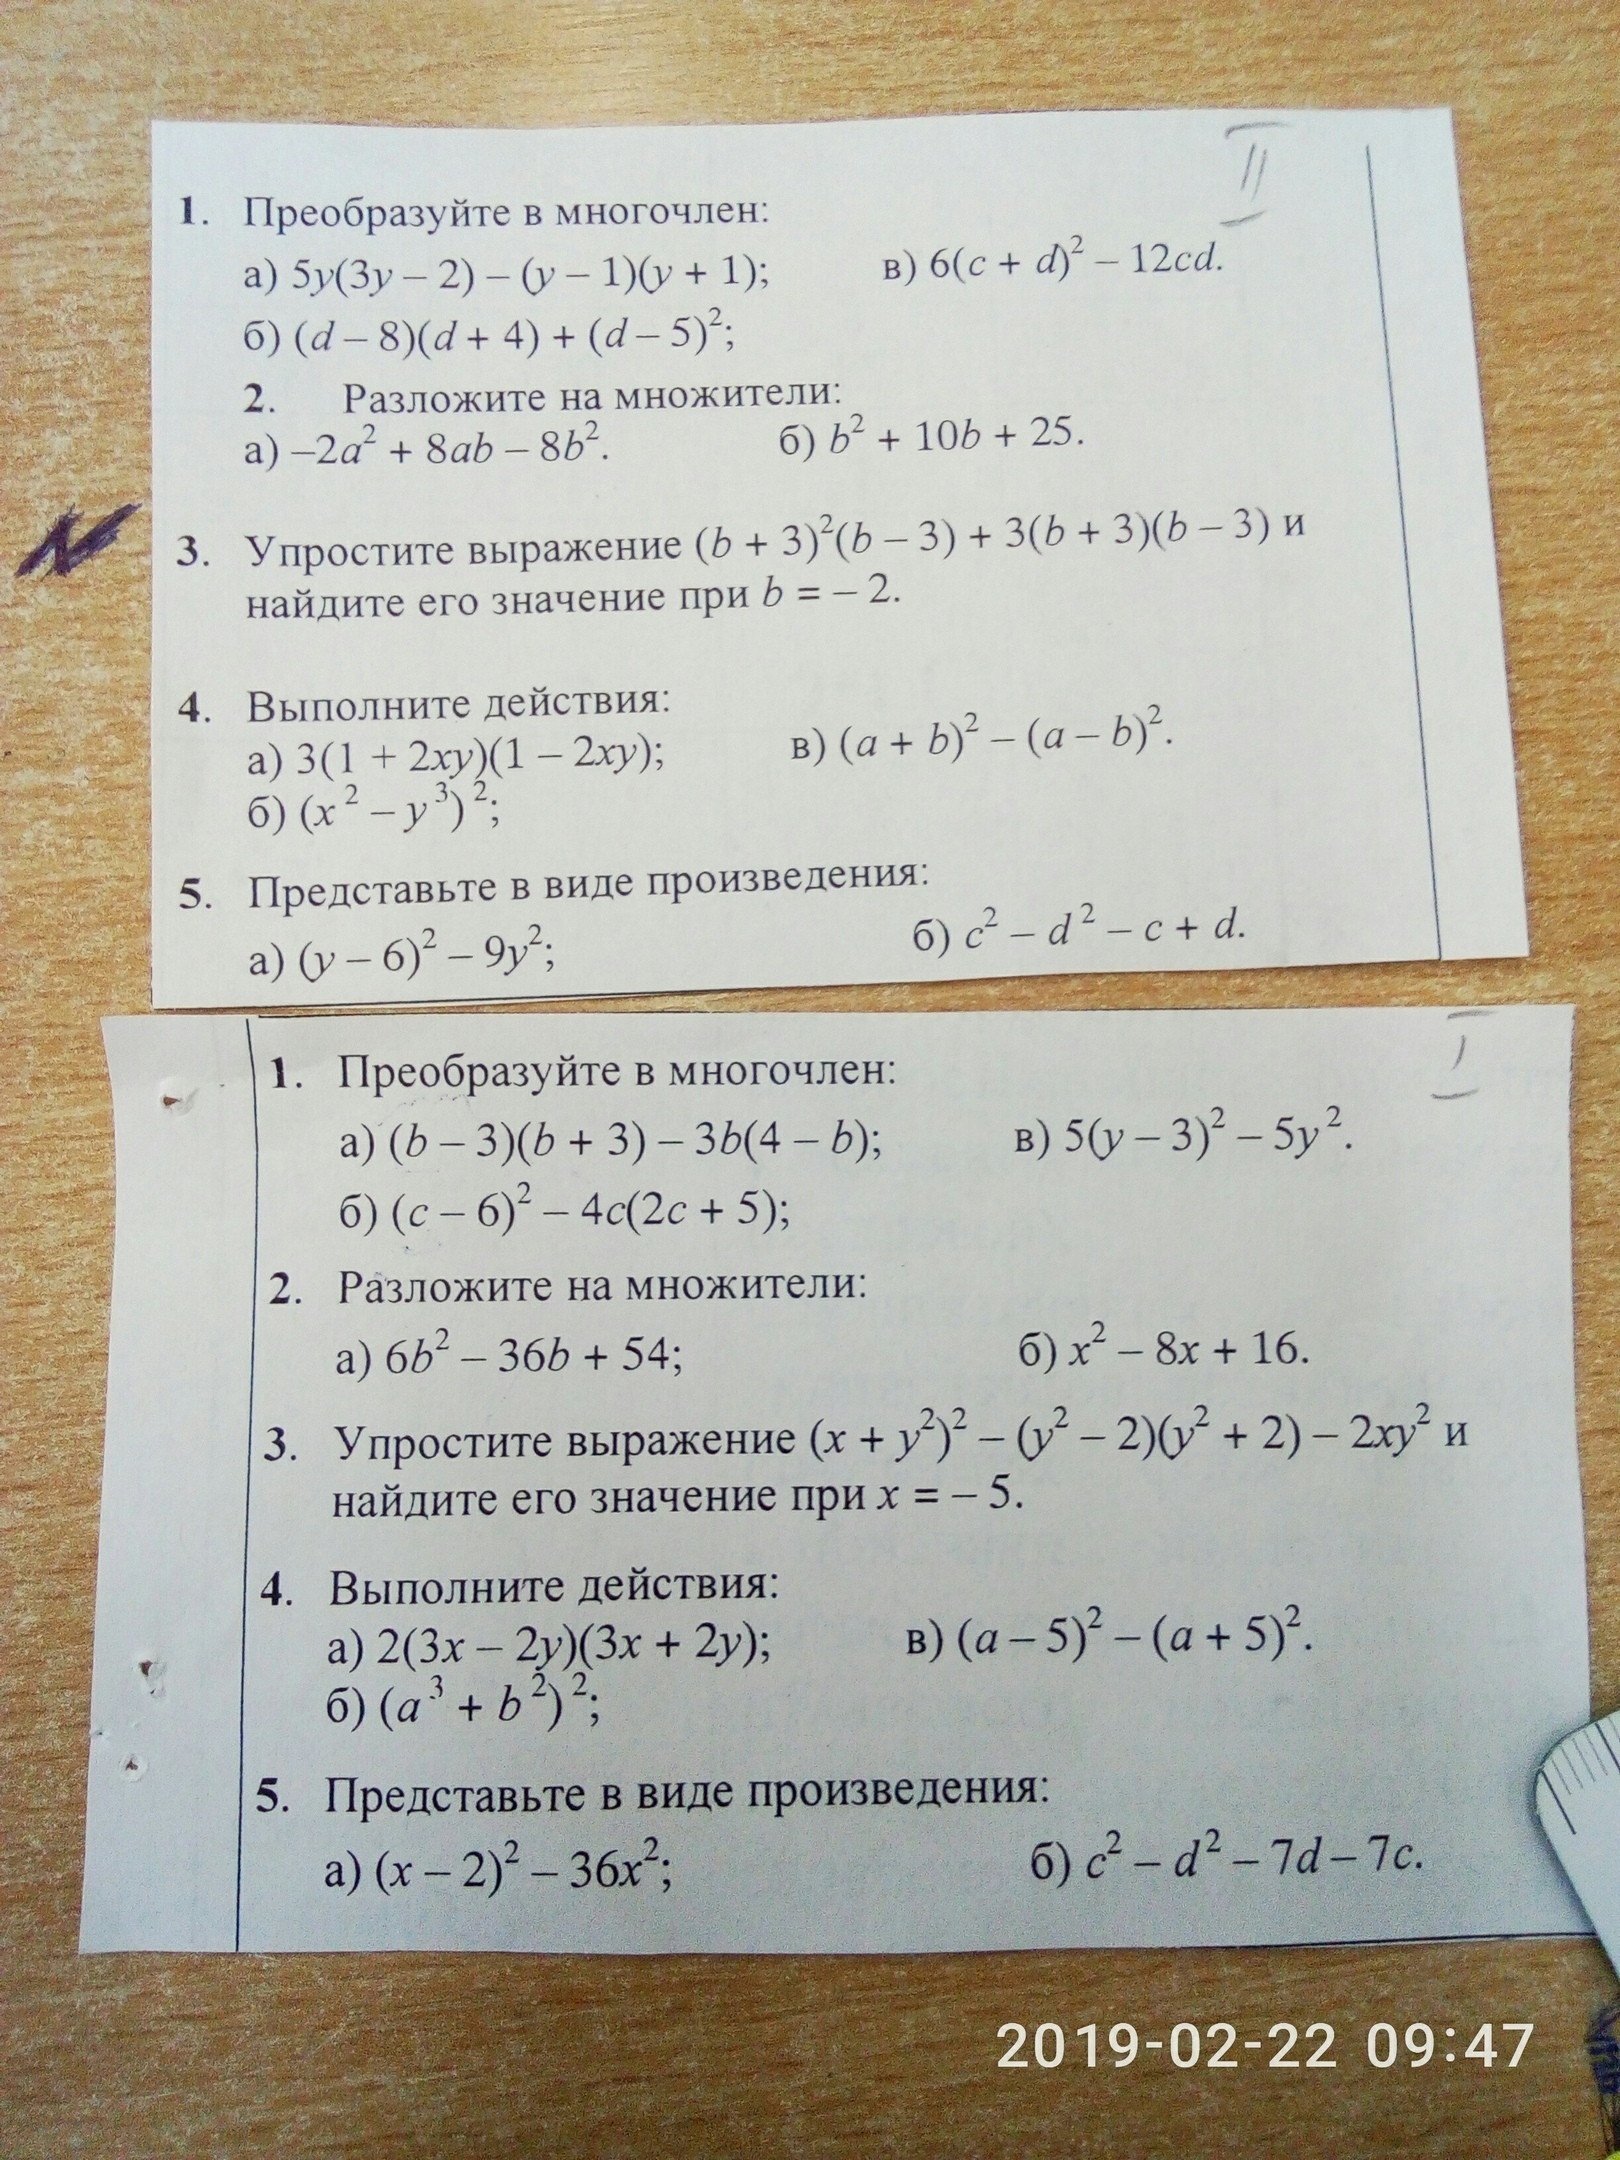 II
1. Преобразуйте в многочлен:
а) 5y(3y – 2) – (y – 1)(y + 1); в) 6(c + d)² – 12cd.
б) (d – 8)(d + 4) + (d – 5)²;
2. Разложите на множители:
а) –2a² + 8ab – 8b². б) b² + 10b + 25.
3. Упростите выражение (b + 3)²(b – 3) + 3(b + 3)(b – 3) и
найдите его значение при b = – 2.
4. Выполните действия:
а) 3(1 + 2xy)(1 – 2xy); в) (a + b)² – (a – b)².
б) (x² – y³)²;
5. Представьте в виде произведения:
а) (y – 6)² – 9y²; б) c² – d² – c + d.
I
1. Преобразуйте в многочлен:
а) (b – 3)(b + 3) – 3b(4 – b); в) 5(y – 3)² – 5y².
б) (c – 6)² – 4c(2c + 5);
2. Разложите на множители:
а) 6b² – 36b + 54; б) x² – 8x + 16.
3. Упростите выражение (x + y²)² – (y² – 2)(y² + 2) – 2xy² и
найдите его значение при x = – 5.
4. Выполните действия:
а) 2(3x – 2y)(3x + 2y); в) (a – 5)² – (a + 5)².
б) (a³ + b²)²;
5. Представьте в виде произведения:
а) (x – 2)² – 36x²; б) c² – d² – 7d – 7c.
2019-02-22 09:47